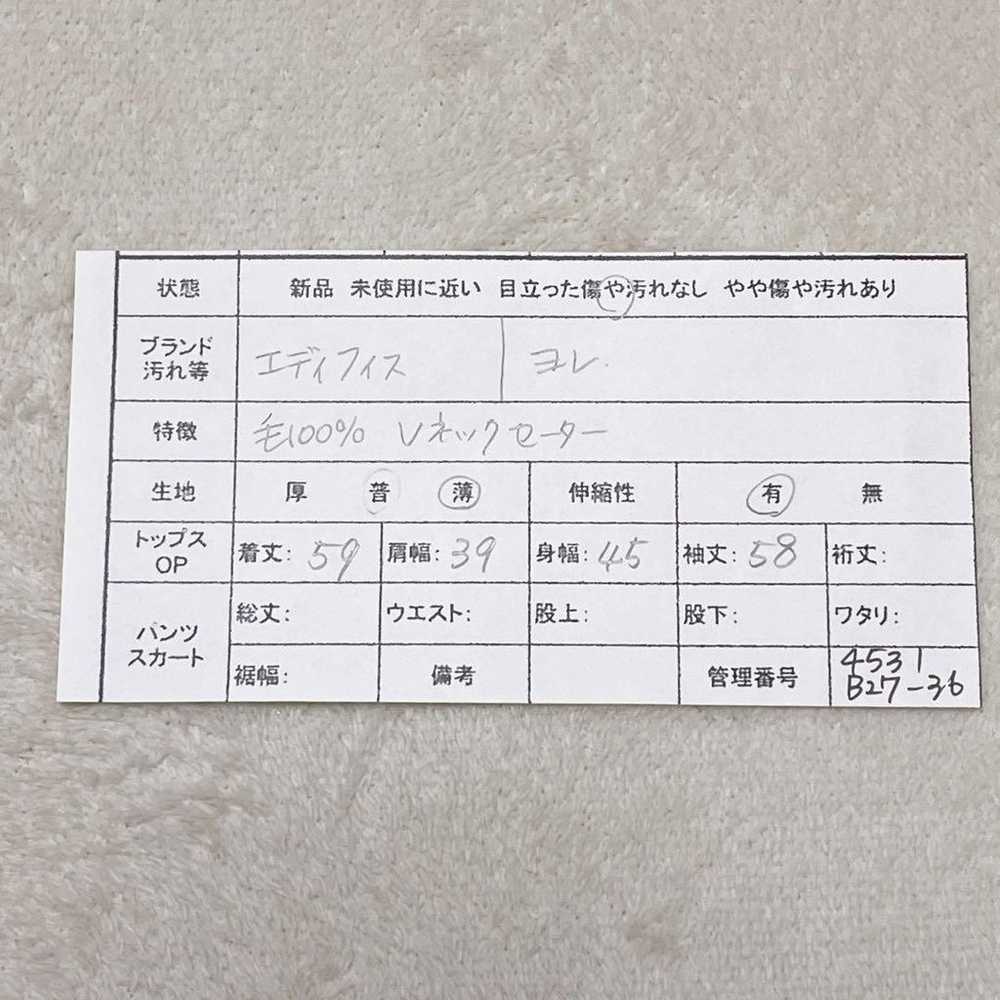 状態 新品 未使用に近い 目立った傷や汚れなし やや傷や汚れあり
ブランド
汚れ等 エディフィス ヨレ.
特徴 毛100% Vネックセーター
生地 厚 普 薄 伸縮性 有 無
トップス
OP 着丈: 59 肩幅: 39 身幅: 45 袖丈: 58 裄丈:
パンツ
スカート 総丈: ウエスト: 股上: 股下: ワタリ:
裾幅: 備考 管理番号 4531
B27-36